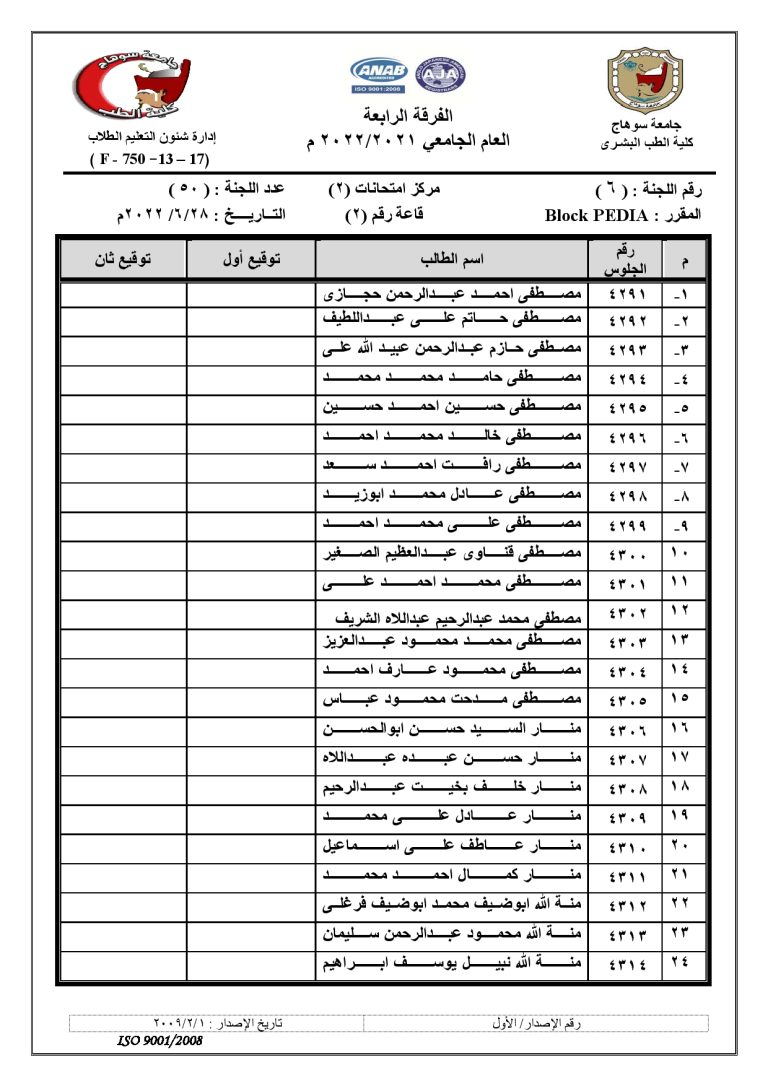 جامعة سوهاج
كلية الطب
ANAB
ACCREDITED
ISO 9001:2008
AJA
إدارة شئون التعليم الطلاب
( F - 750 -13 – 17)
الفرقة الرابعة
العام الجامعي ٢٠٢٢/٢٠٢١ م
جامعة سوهاج
كلية الطب البشرى
رقم اللجنة : ( ٦ ) مركز امتحانات (٢) عدد اللجنة : ( ٥٠ )
المقرر : Block PEDIA قاعة رقم (٢) التــاريــــخ : ٢٠٢٢/٦/٢٨م
م رقم الجلوس اسم الطالب توقيع أول توقيع ثان
١- ٤٢٩١ مصطفى احمد عبدالرحمن حجازى
٢- ٤٢٩٢ مصطفى حاتم على عبداللطيف
٣- ٤٢٩٣ مصطفى حازم عبدالرحمن عبيد الله على
٤- ٤٢٩٤ مصطفى حامد محمد محمد
٥- ٤٢٩٥ مصطفى حسين احمد حسين
٦- ٤٢٩٦ مصطفى خالد محمد احمد
٧- ٤٢٩٧ مصطفى رافت احمد سعد
٨- ٤٢٩٨ مصطفى عادل محمد ابوزيد
٩- ٤٢٩٩ مصطفى على محمد احمد
١٠ ٤٣٠٠ مصطفى قناوى عبدالعظيم الصغير
١١ ٤٣٠١ مصطفى محمد احمد على
١٢ ٤٣٠٢ مصطفى محمد عبدالرحيم عبداللاه الشريف
١٣ ٤٣٠٣ مصطفى محمد محمود عبدالعزيز
١٤ ٤٣٠٤ مصطفى محمود عارف احمد
١٥ ٤٣٠٥ مصطفى مدحت محمود عباس
١٦ ٤٣٠٦ منار السيد حسن ابوالحسن
١٧ ٤٣٠٧ منار حسن عبده عبداللاه
١٨ ٤٣٠٨ منار خلف بخيت عبدالرحيم
١٩ ٤٣٠٩ منار عادل على محمد
٢٠ ٤٣١٠ منار عاطف على اسماعيل
٢١ ٤٣١١ منار كمال احمد محمد
٢٢ ٤٣١٢ منة الله ابوضيف محمد ابوضيف فرغلى
٢٣ ٤٣١٣ منة الله محمود عبدالرحمن سليمان
٢٤ ٤٣١٤ منة الله نبيل يوسف ابراهيم
رقم الإصدار/ الأول تاريخ الإصدار : ٢٠٠٩/٢/١
ISO 9001/2008